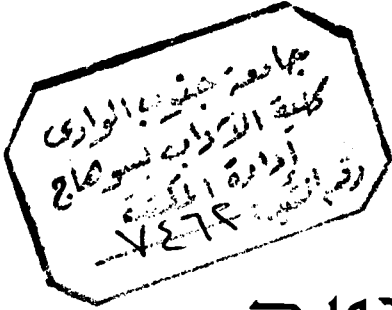 جامعة جنوب الوادى
كلية الآداب بسوهاج
إدارة المكتبة
رقم التسجيل: ٧٤٦٢